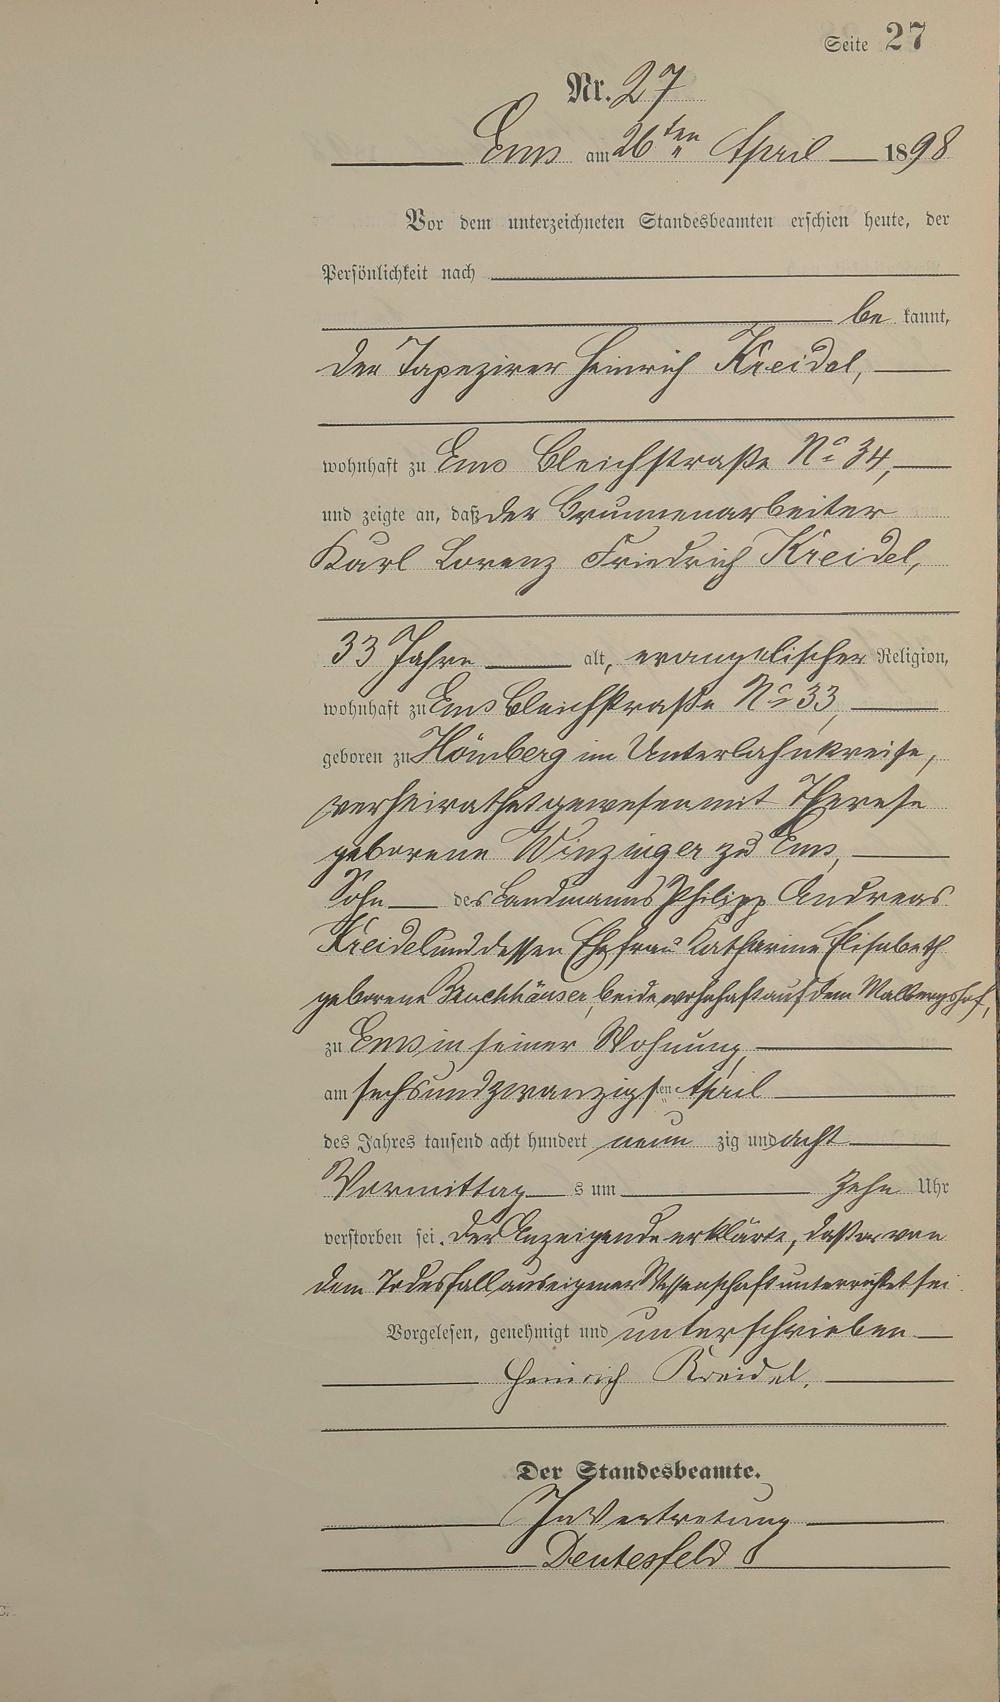 Seite 27
Nr. 27
Ems am 26ten April 1898
Vor dem unterzeichneten Standesbeamten erschien heute, der
Persönlichkeit nach
be kannt,
der Tapezirer Heinrich Kreidel,
wohnhaft zu Ems Bleichstraße No 34,
und zeigte an, daß der Brunnenarbeiter
Karl Lorenz Friedrich Kreidel,
33 Jahre alt, evangelischer Religion,
wohnhaft zu Ems Bleichstraße No 33,
geboren zu Hömberg im Unterlahnkreise,
verheirathet gewesen mit Therese
geborene Winzinger zu Ems,
Sohn des Landmanns Philipp Andreas
Kreidel und dessen Ehefrau Katharine Elisabeth
geborene beide wohnhaft auf dem Malbergshof,
zu Ems in seiner Wohnung,
am sechsundzwanzigsten April
des Jahres tausend acht hundert neun zig und acht
Vormittag s um zehn Uhr
verstorben sei. Der Anzeigende erklärte, daß er von
dem Todesfall aus eigener Wissenschaft unterrichtet sei
Vorgelesen, genehmigt und unterschrieben
Heinrich Kreidel.
Der Standesbeamte.
In Vertretung
Deutesfeld